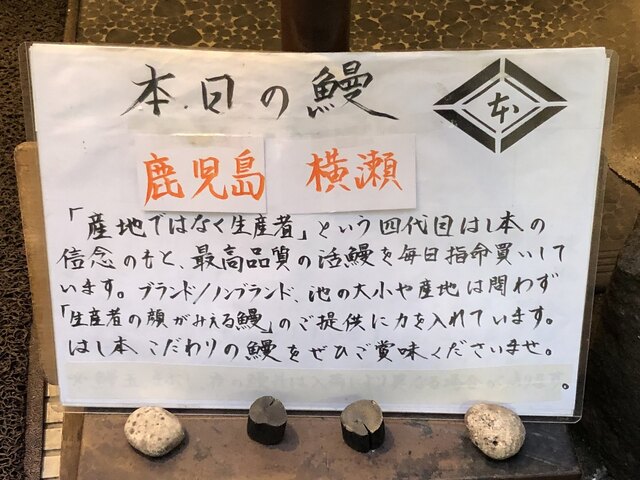 本日の鰻
本
鹿児島 横瀬
「産地ではなく生産者」という四代目はし本の
信念のもと、最高品質の活鰻を毎日指命買いして
います。ブランド/ノンブランド、池の大小や産地は問わず
「生産者の顔がみえる鰻」のご提供に力を入れています。
はし本こだわりの鰻をぜひご賞味くださいませ。
。